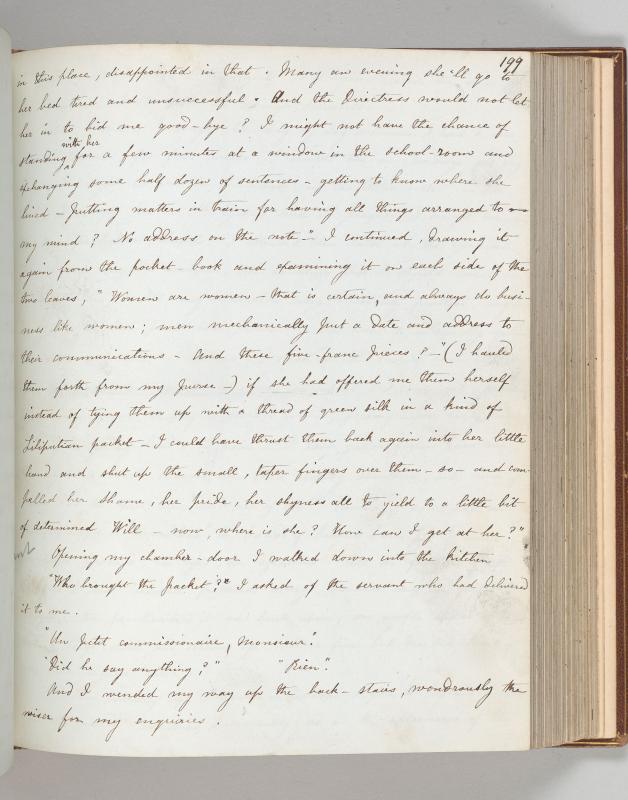 199
in this place, disappointed in that. Many an evening she'll go to
her bed tired and unsuccessful. And the Directress would not let
her in to bid me good-bye? I might not have the chance of
with her
standing for a few minutes at a window in the school-room and
exchanging some half dozen of sentences - getting to know where she
lived - putting matters in train for having all things arranged to
my mind? No address on the note"- I continued, drawing it
again from the pocket-book and examining it on each side of the
two leaves, "Women are women - that is certain, and always do busi-
ness like women; men mechanically put a date and address to
their communications - And these five-franc pieces? -" (I hauled
them forth from my purse -) if she had offered me them herself
instead of tying them up with a thread of green silk in a kind of
Liliputian packet - I could have thrust them back again into her little
hand and shut up the small, taper fingers over them - so - and com-
pelled her shame, her pride, her shyness all to yield to a little bit
of determined Will - now, where is she? How can I get at her?"
Opening my chamber-door I walked down into the kitchen
"Who brought the packet?" I asked of the servant who had delivered
it to me.
"Un petit commissionaire, Monsieur".
"Did he say anything?" "Rien".
And I wended my way up the back-stairs, wondrously the
wiser for my enquiries.